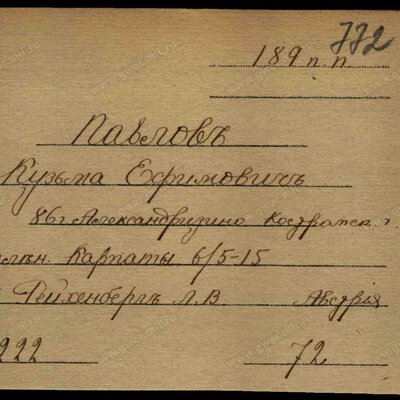 772
189 п. п.
Павловъ
Кузьма Ефимовичъ
86 г. Александризино Костромск. г.
Карпаты 6/5-15
Рейхенбергъ Л. В Австрия
222 72